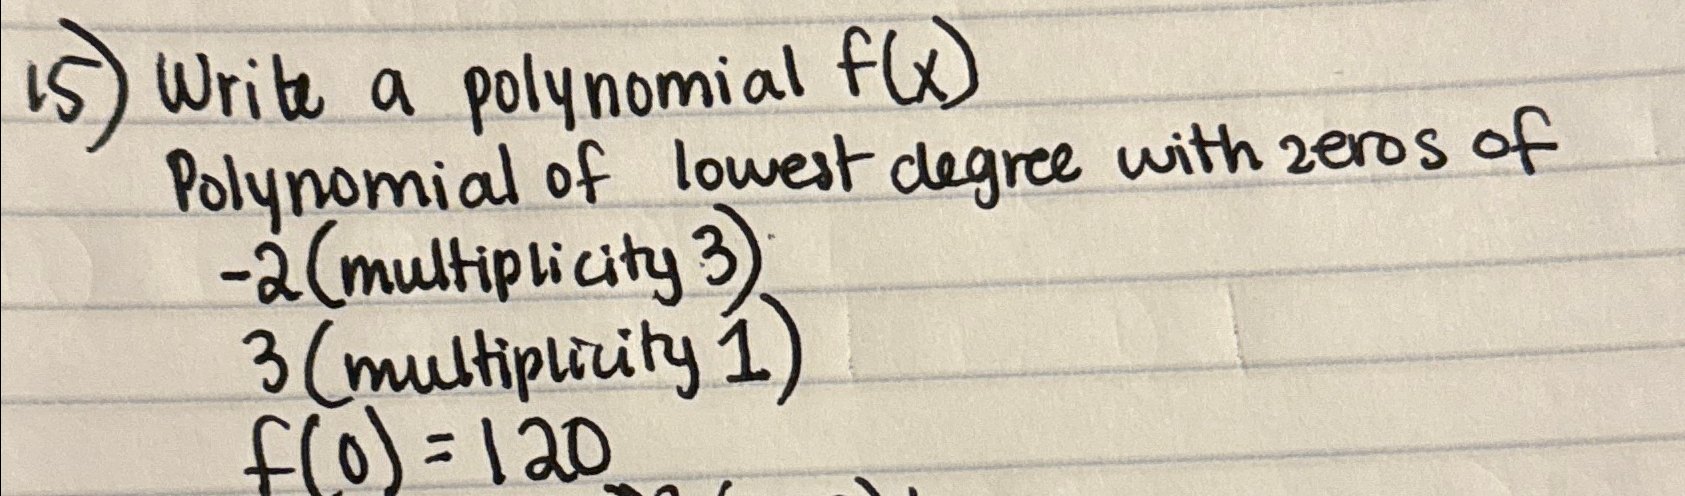 15) Write a polynomial f(x)
Polynomial of lowest degree with zeros of
-2 (multiplicity 3)
3 (multiplicity 1)
f(0) = 120